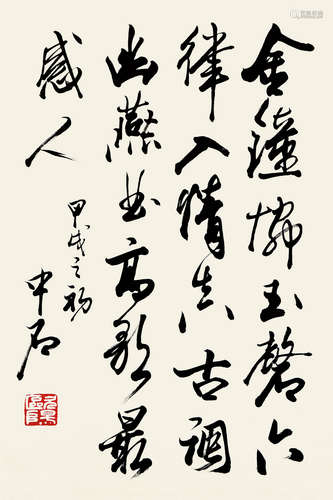 金鐘協玉磬六
律入情真古調
幽燕曲高歌最
感人
甲戌之初
中石